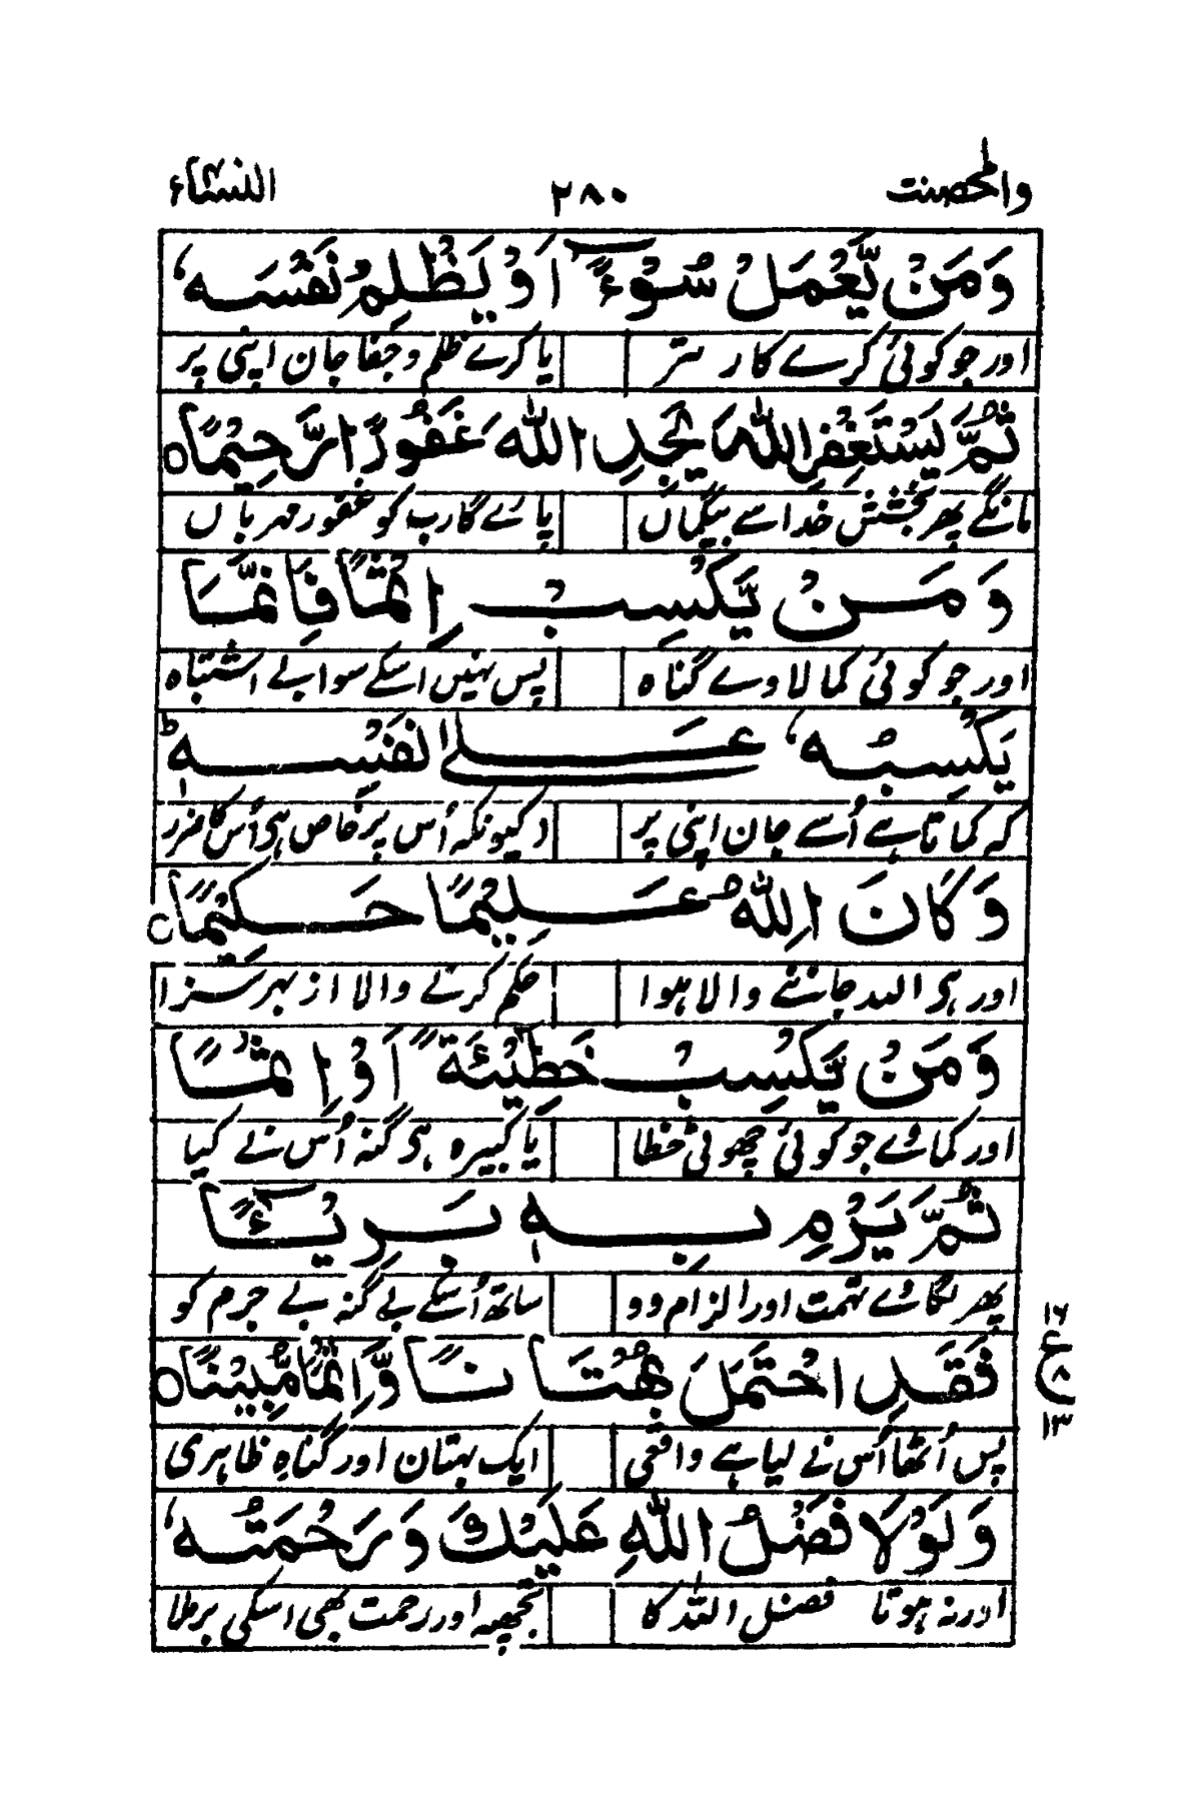 والمحصنت ۲۸۰ النساء
وَمَنْ يَّعْمَلْ سُوْٓءًا اَوْ يَظْلِمْ نَفْسَهٗ
اور جو کوئی کرے کار یا کرے ظلم و جفا جان اپنی پر
ثُمَّ يَسْتَغْفِرِ اللّٰهَ يَجِدِ اللّٰهَ غَفُوْرًا رَّحِيْمًا ○
مانگے پھر بخشش خدا سے بیگماں پائے گا رب کو غفور مہرباں
وَمَنْ يَّكْسِبْ اِثْمًا فَاِنَّمَا
اور جو کوئی کما لاوے گناہ پس نہیں اسکے سوا بے اشتباہ
يَكْسِبُهٗ عَلٰى نَفْسِهٖ ؕ
کہ کماتا ہے اُسے جان اپنی پر کیونکہ اُس پر خاص ہی اُس کا ضرر
وَكَانَ اللّٰهُ عَلِيْمًا حَكِيْمًا ○
اور ہی اللہ جاننے والا ہوا حکم کرنے والا از بہر سزا
وَمَنْ يَّكْسِبْ خَطِيْٓئَةً اَوْ اِثْمًا
اور کمائے جو کوئی چھوٹی خطا یا کبیرہ ہی گنہ اُس نے کیا
ثُمَّ يَرْمِ بِهٖ بَرِيْٓـًٔا
پھر لگائے تہمت اور الزام وو ساتھ اُسکے بے گنہ بے جرم کو
فَقَدِ احْتَمَلَ بُهْتَانًا وَّاِثْمًا مُّبِيْنًا ○
۱۶ ع ۸ ۱۳
پس اُٹھا اُس نے لیا ہے واقعی ایک بہتان اور گناہِ ظاہری
وَلَوْلَا فَضْلُ اللّٰهِ عَلَيْكَ وَرَحْمَتُهٗ
اور نہ ہوتا فضل اللہ کا تجھپہ اور رحمت بھی اسکی برملا